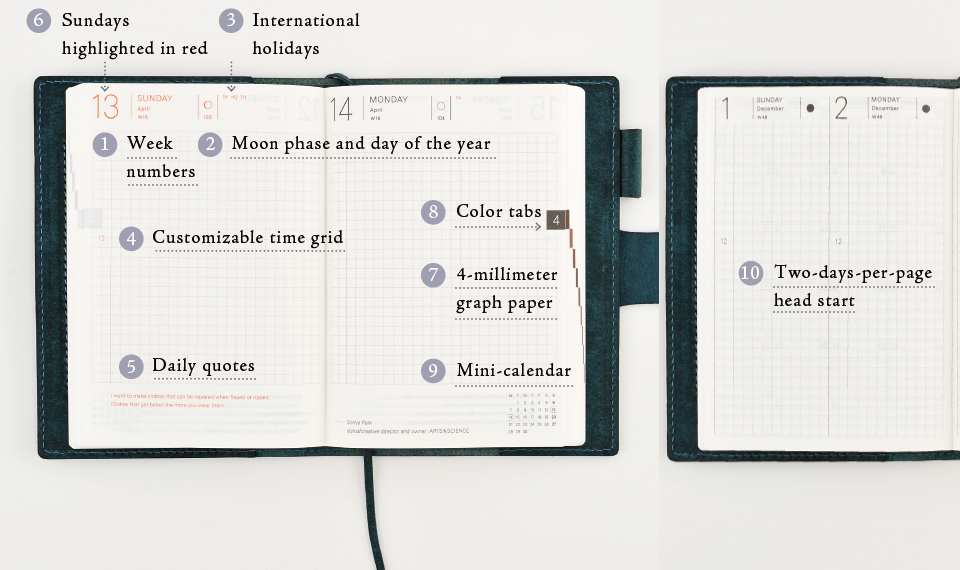 6 Sundays
highlighted in red
3 International
holidays
13 SUNDAY
April
W16
103
14 MONDAY
April
W16
104
1 Week
numbers
2 Moon phase and day of the year
8 Color tabs
4
4 Customizable time grid
12
7 4-millimeter
graph paper
5 Daily quotes
9 Mini-calendar
I want to make clothes that can be repaired when frayed or ripped.
Clothes that get better the more you wear them.
Sonya Park
stylist/creative director and owner, ARTS&SCIENCE
M T W T F S S
1 2 3 4 5 6
7 8 9 10 11 12 13
14 15 16 17 18 19 20
21 22 23 24 25 26 27
28 29 30
1 SUNDAY
December
W48
2 MONDAY
December
W49
12
12
10 Two-days-per-page
head start